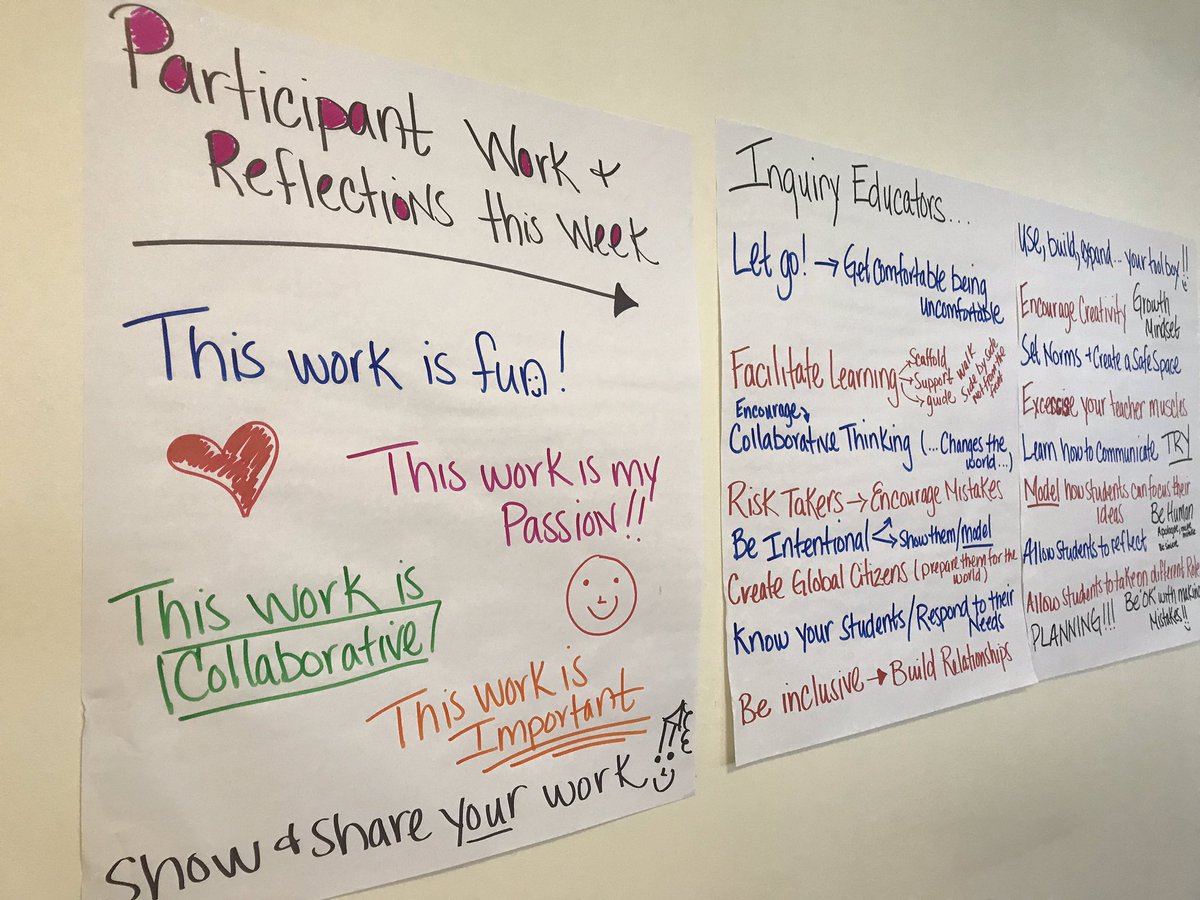 Participant Work +
Reflections this week
This work is fun!
This work is my
Passion!!
This work is
Collaborative
This work is
Important
Show & share your work!!
Inquiry Educators...
Let go! → Get comfortable being
uncomfortable
Facilitate Learning
→ Scaffold
→ Support
→ guide
walk
side by side
not from the
front
Encourage
Collaborative Thinking (... Changes the
world...)
Risk Takers → Encourage Mistakes
Be Intentional → Show them/model
Create Global Citizens (prepare them for the
world)
Know your Students/Respond to their
Needs
Be inclusive → Build Relationships
Use, build, expand... your tool box!!
Encourage Creativity
Growth
Mindset
Set Norms + Create a Safe Space
Excercise your teacher muscles
Learn how to Communicate TRY
Model how students can focus their
ideas
Be Human
Allow Students to reflect
Allow Students to take on different Role
PLANNING!!!
Be OK with makin
Mistakes!!